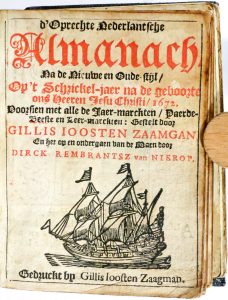 d'Oprechte Nederlantsche
Almanach
Na de Nieuwe en Oude stijl /
Op't Schrickel-jaer na de geboorte
ons Heeren Jesu Christi / 1672.
Voorsien met alle de Jaer-marckten / Paerde-
Beeste en Leer-marckten: Gestelt door
GILLIS IOOSTEN ZAAGMAN
En het op en ondergaen van de Maen door
DIRCK REMBRANTSZ van NIEROP.
Gedruckt by Gillis Ioosten Zaagman.